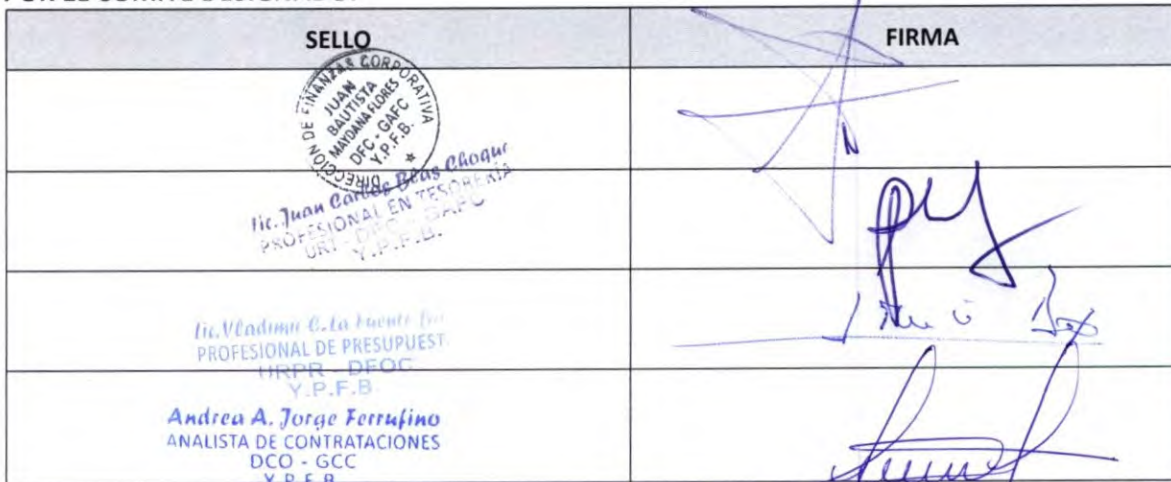 SELLO
FIRMA
DIRECCION DE FINANZAS CORPORATIVA
JUAN
BAUTISTA
MAYDANA FLORES
DFC - GAFC
Y.P.F.B.
Lic. Juan Carlos Blas Choque
PROFESIONAL EN TESORERÍA
URT - DFC - GAFC
Y.P.F.B.
Lic. Vladimir C. La Fuente
PROFESIONAL DE PRESUPUEST
URPR - DFOC
Y.P.F.B
Andrea A. Jorge Ferrufino
ANALISTA DE CONTRATACIONES
DCO - GCC
Y.P.F.B